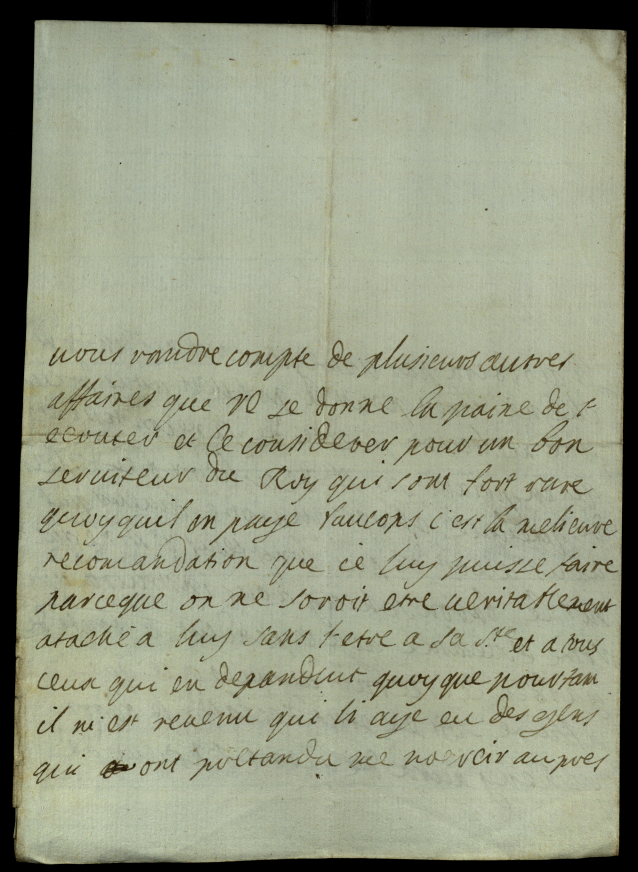 vous randre compte de plusieurs autres
affaires que VE se donne la paine de l
ecouter et Le considerer pour un bon
serviteur du Roy qui sont fort rare
quoyquil en paye c est la melieure
recomandation que ie luy puisse faire
parceque on ne soroit etre veritablement
ataché a luy sans l etre a sa Sté et a tous
ceux qui en depandent quoyque pourtan
il m est revenu qui li aye eu des gens
qui ont pretandu me noercir aupres